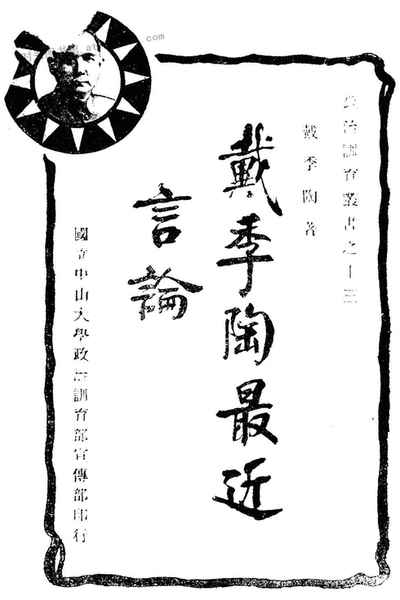 政治訓育叢書之十三
戴季陶著
戴季陶最近
言論
國立中山大學政治訓育部宣傳部印行
.com